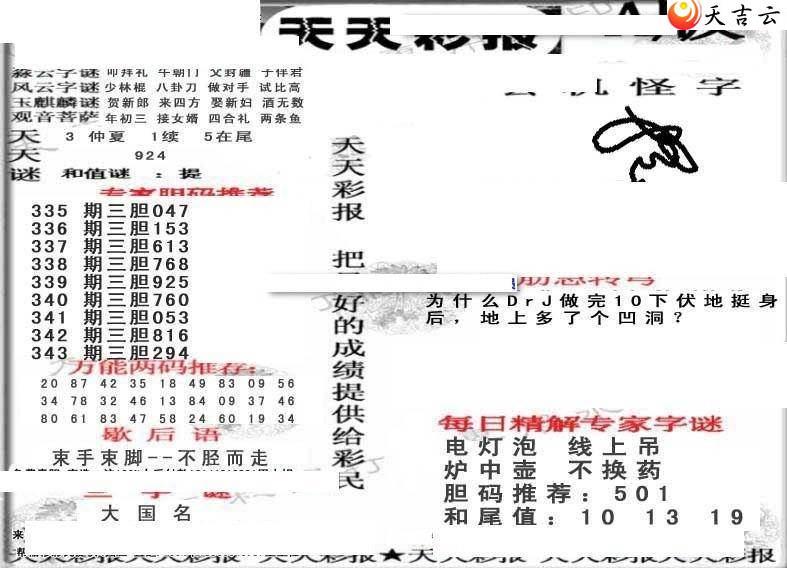 天吉云
天天彩报
森云字谜 叩拜礼 午朝门 父封疆 子伴君
风云字谜 少林棍 八卦刀 做对手 试比高
玉麒麟谜 贺新郎 来四方 娶新妇 酒无数
观音菩萨 年初三 接女婿 四合礼 两条鱼
天 3 仲夏 1续 5在尾
天 924
谜 和值谜 : 提
专家胆码推荐
335 期三胆047
336 期三胆153
337 期三胆613
338 期三胆768
339 期三胆925
340 期三胆760
341 期三胆053
342 期三胆816
343 期三胆294
万能两码推荐:
20 87 42 35 18 49 83 09 56
34 78 32 46 13 84 09 37 46
80 61 83 47 58 24 60 19 34
歇后语
束手束脚--不胫而走
字谜
大国名
来
天天彩报 把 好的成绩提供给彩民
玄机怪字
脑急转弯
为什么DrJ做完10下伏地挺身
后，地上多了个凹洞？
每日精解专家字谜
电灯泡 线上吊
炉中壶 不换药
胆码推荐: 501
和尾值: 10 13 19
天天彩报 天天彩报 天天彩报★天天彩报 天天彩报 天天彩报